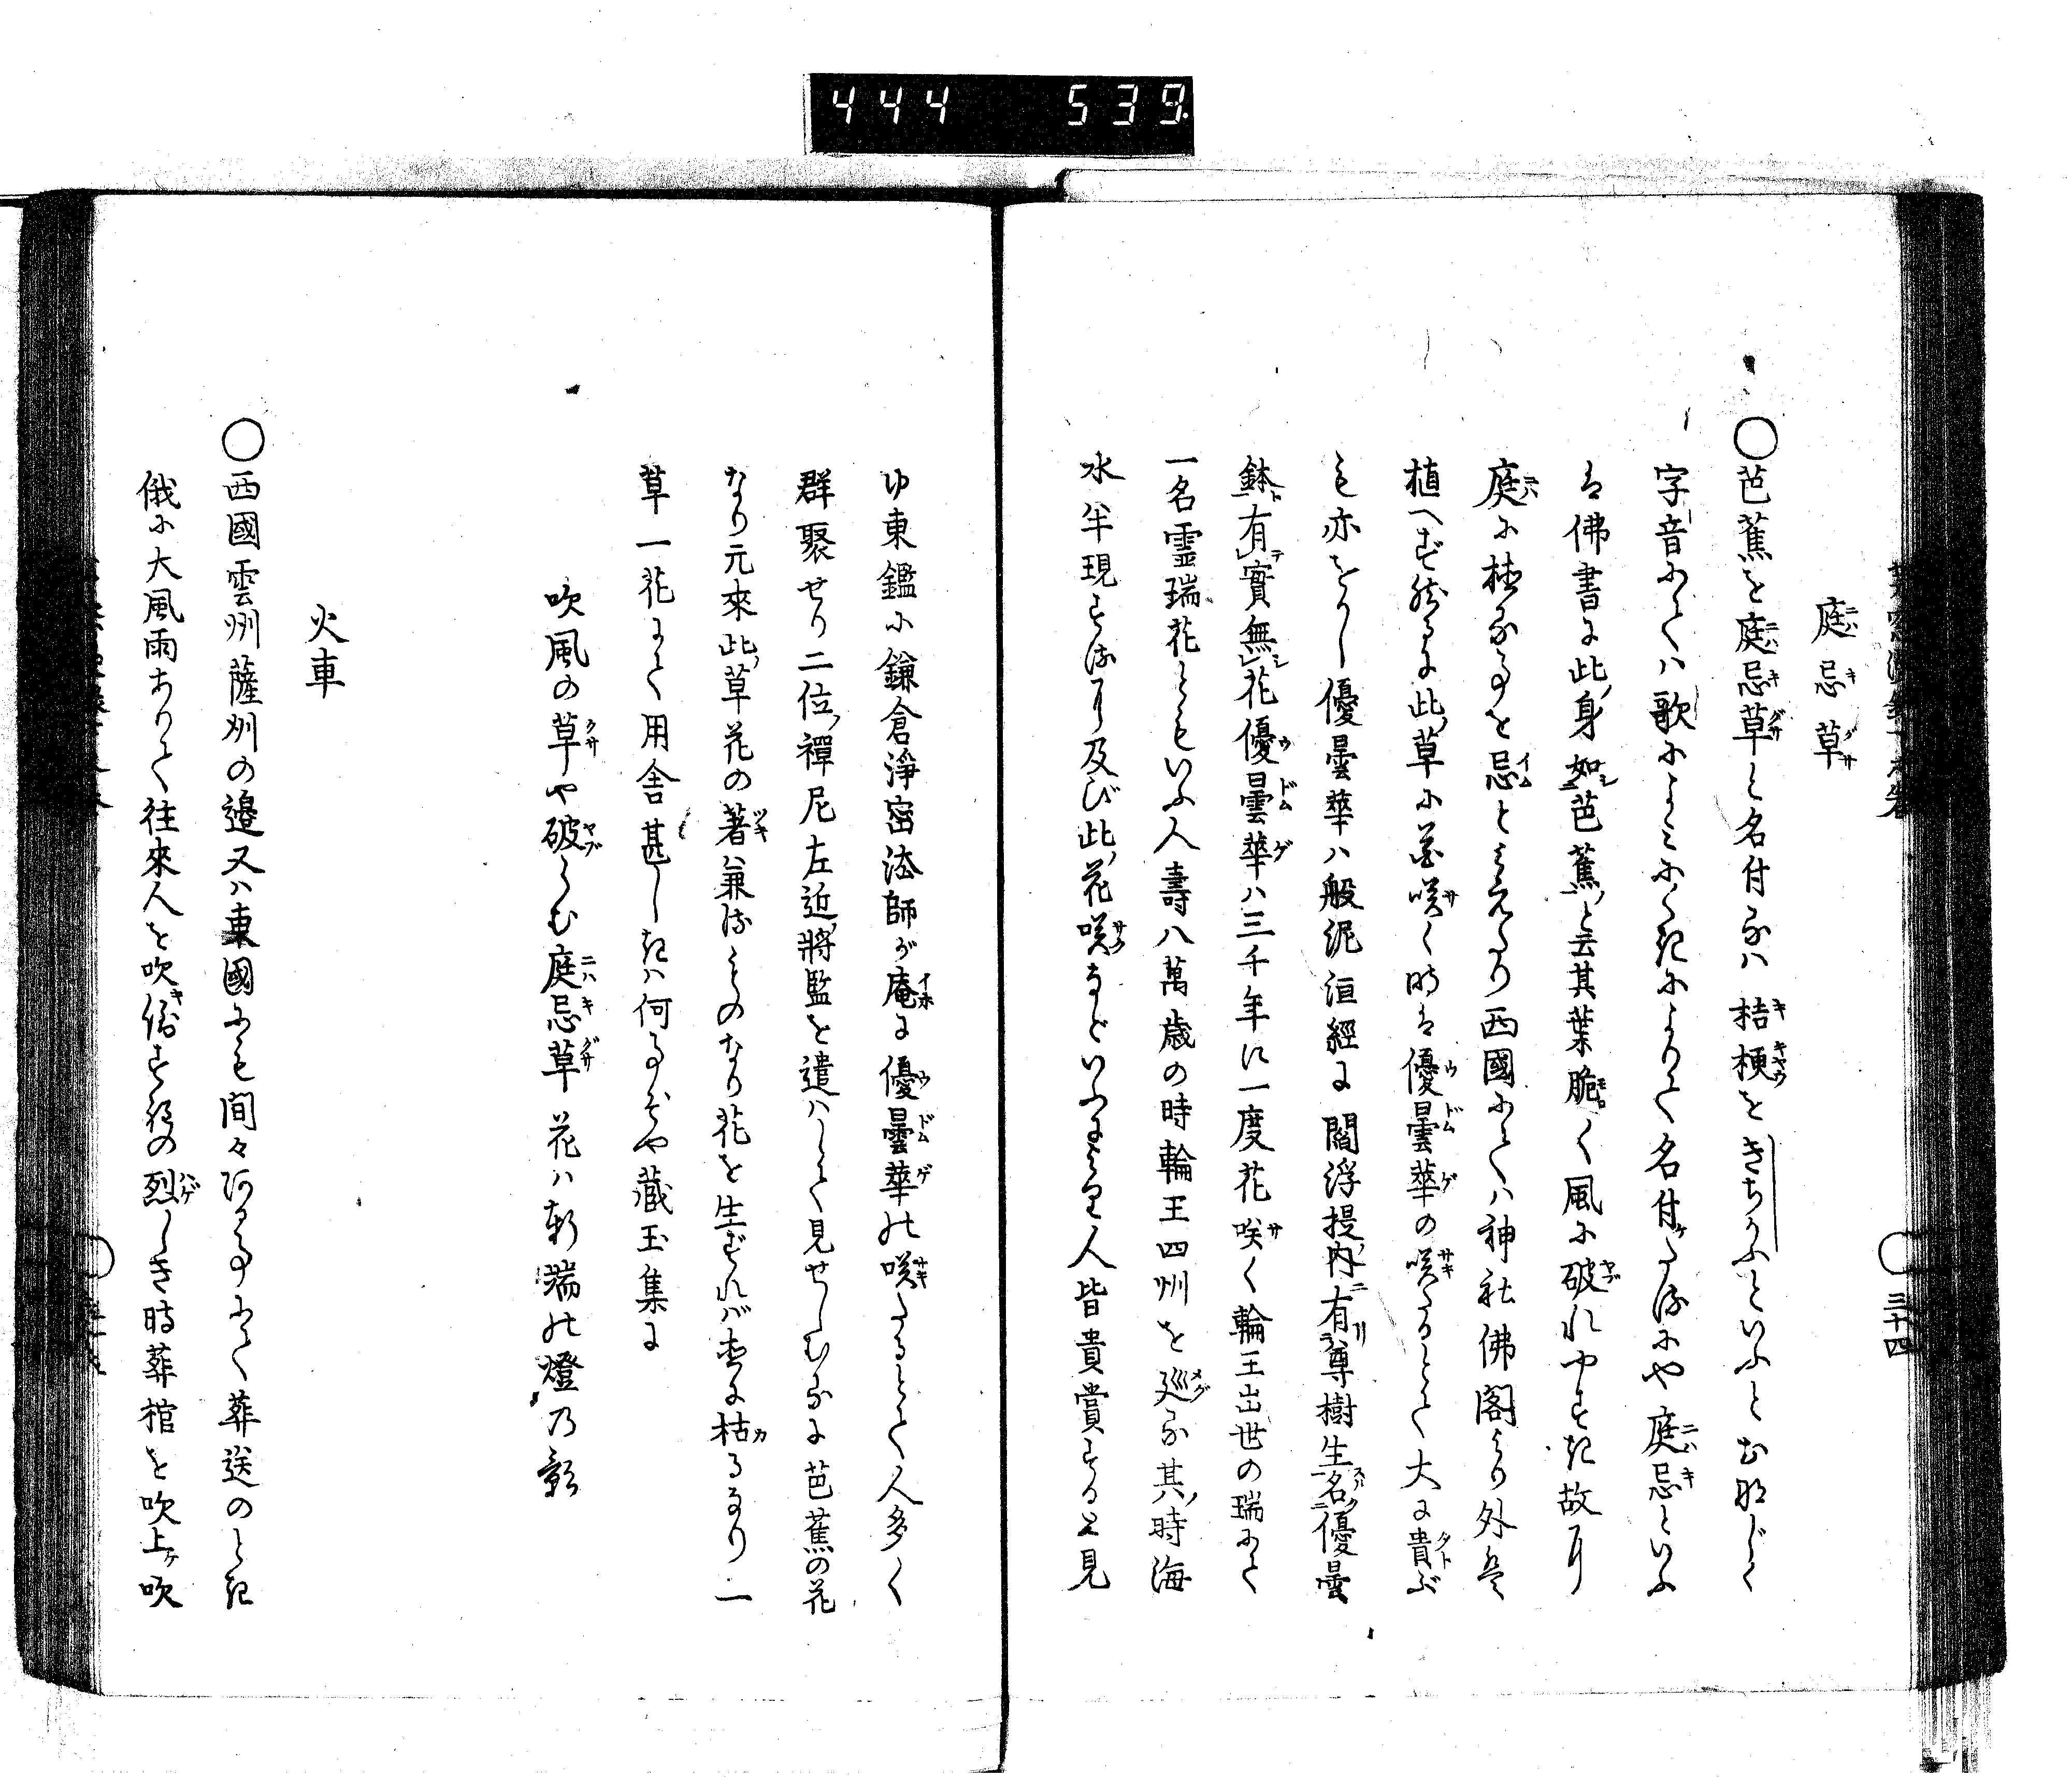 444 539
三十四
庭忌草
○芭蕉を庭忌草と名付るハ桔梗をきちかふといふと同じく
字音にてハ歌によミにくきによりて名付たるにや庭忌といふ
は佛書に此身如芭蕉と云其葉脆く風に破れやすき故に
庭に植る事を忌と見えたり西國にてハ神社佛閣より外は
植へず然るに此草に花咲く時は優曇華の咲たるとて大に貴ぶ
も亦をかし優曇華ハ般泥洹經に閻浮提内有尊樹生名優曇
鉢有實無花優曇華ハ三千年に一度花咲く輪王出世の瑞にて
一名霊瑞花ともいふ人壽八萬歳の時輪王四州を巡る其時海
水半現する に及び此花咲などいふにより人皆貴賞すると見
ゆ東鑑に鎌倉淨密法師が庵に優曇華の咲たるとて人多く
群聚せり二位禪尼左近將監を遣ハして見せしむるに芭蕉の花
なり元來此草花の著兼るものなり花を生ずれバ忽に枯るなり一
草一花にて用舎甚しきハ何事ぞや藏玉集に
吹風の草や破らむ庭忌草花ハ軒端の燈乃影
火車
○西國雲州薩州の邉又ハ東國にも間々ある事にて葬送のとき
俄に大風雨ありて往來人を吹倒す程の烈しき時葬棺を吹上ケ吹